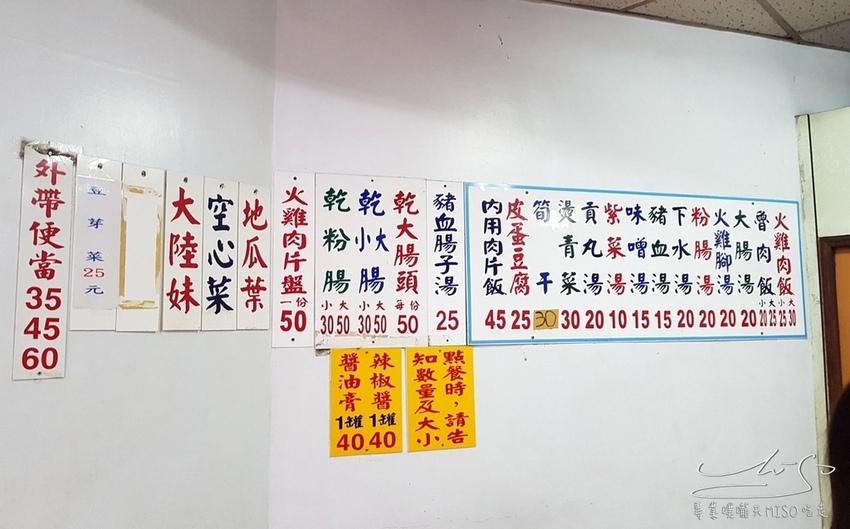 火雞肉飯 小25 大30
魯肉飯 小20 大25
大腸湯 20
火雞腳湯 20
粉腸湯 20
下水湯 20
豬血湯 15
味噌湯 15
紫菜湯 10
貢丸湯 20
燙青菜 30
筍干 30
皮蛋豆腐 25
內用肉片飯 45
豬血腸子湯 25
乾大腸頭 每份 50
乾小大腸 小30 大50
乾粉腸 小30 大50
火雞肉片盤 一份 50
地瓜葉
空心菜
大陸妹
豆芽菜25元
外帶便當 35 45 60
點餐時，請告
知數量及大小
辣椒醬 1罐 40
醬油膏 1罐 40
MISO
專業嘆哺夫MISO吃走